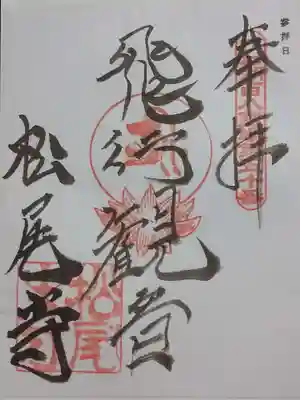 参拝日
奉拝
飛行観音
松尾寺
松尾寺